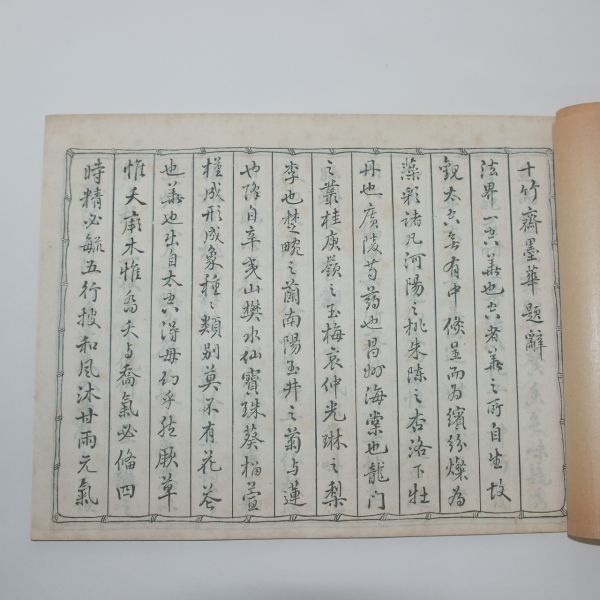 十竹齋墨華題辭
法界一空華也空者華之所自生故
觀太空無有中倏呈而為繽紛燦為
藻彩諸凡河陽之桃朱陳之杏洛下牡
丹也廣陵芍藥也昌州海棠也龍門
之叢桂庾嶺之玉梅哀仲光琳之梨
李也楚畹之蘭南陽玉井之菊与蓮
也降自辛夷山礬水仙寶珠葵榴萱
槿成形成象種之類別莫不有花花
也華也出自太空得毋幻乎然厥草
惟夭厥木惟喬夭与喬氣必俻四
時精必毓五行披和風沐甘雨元氣